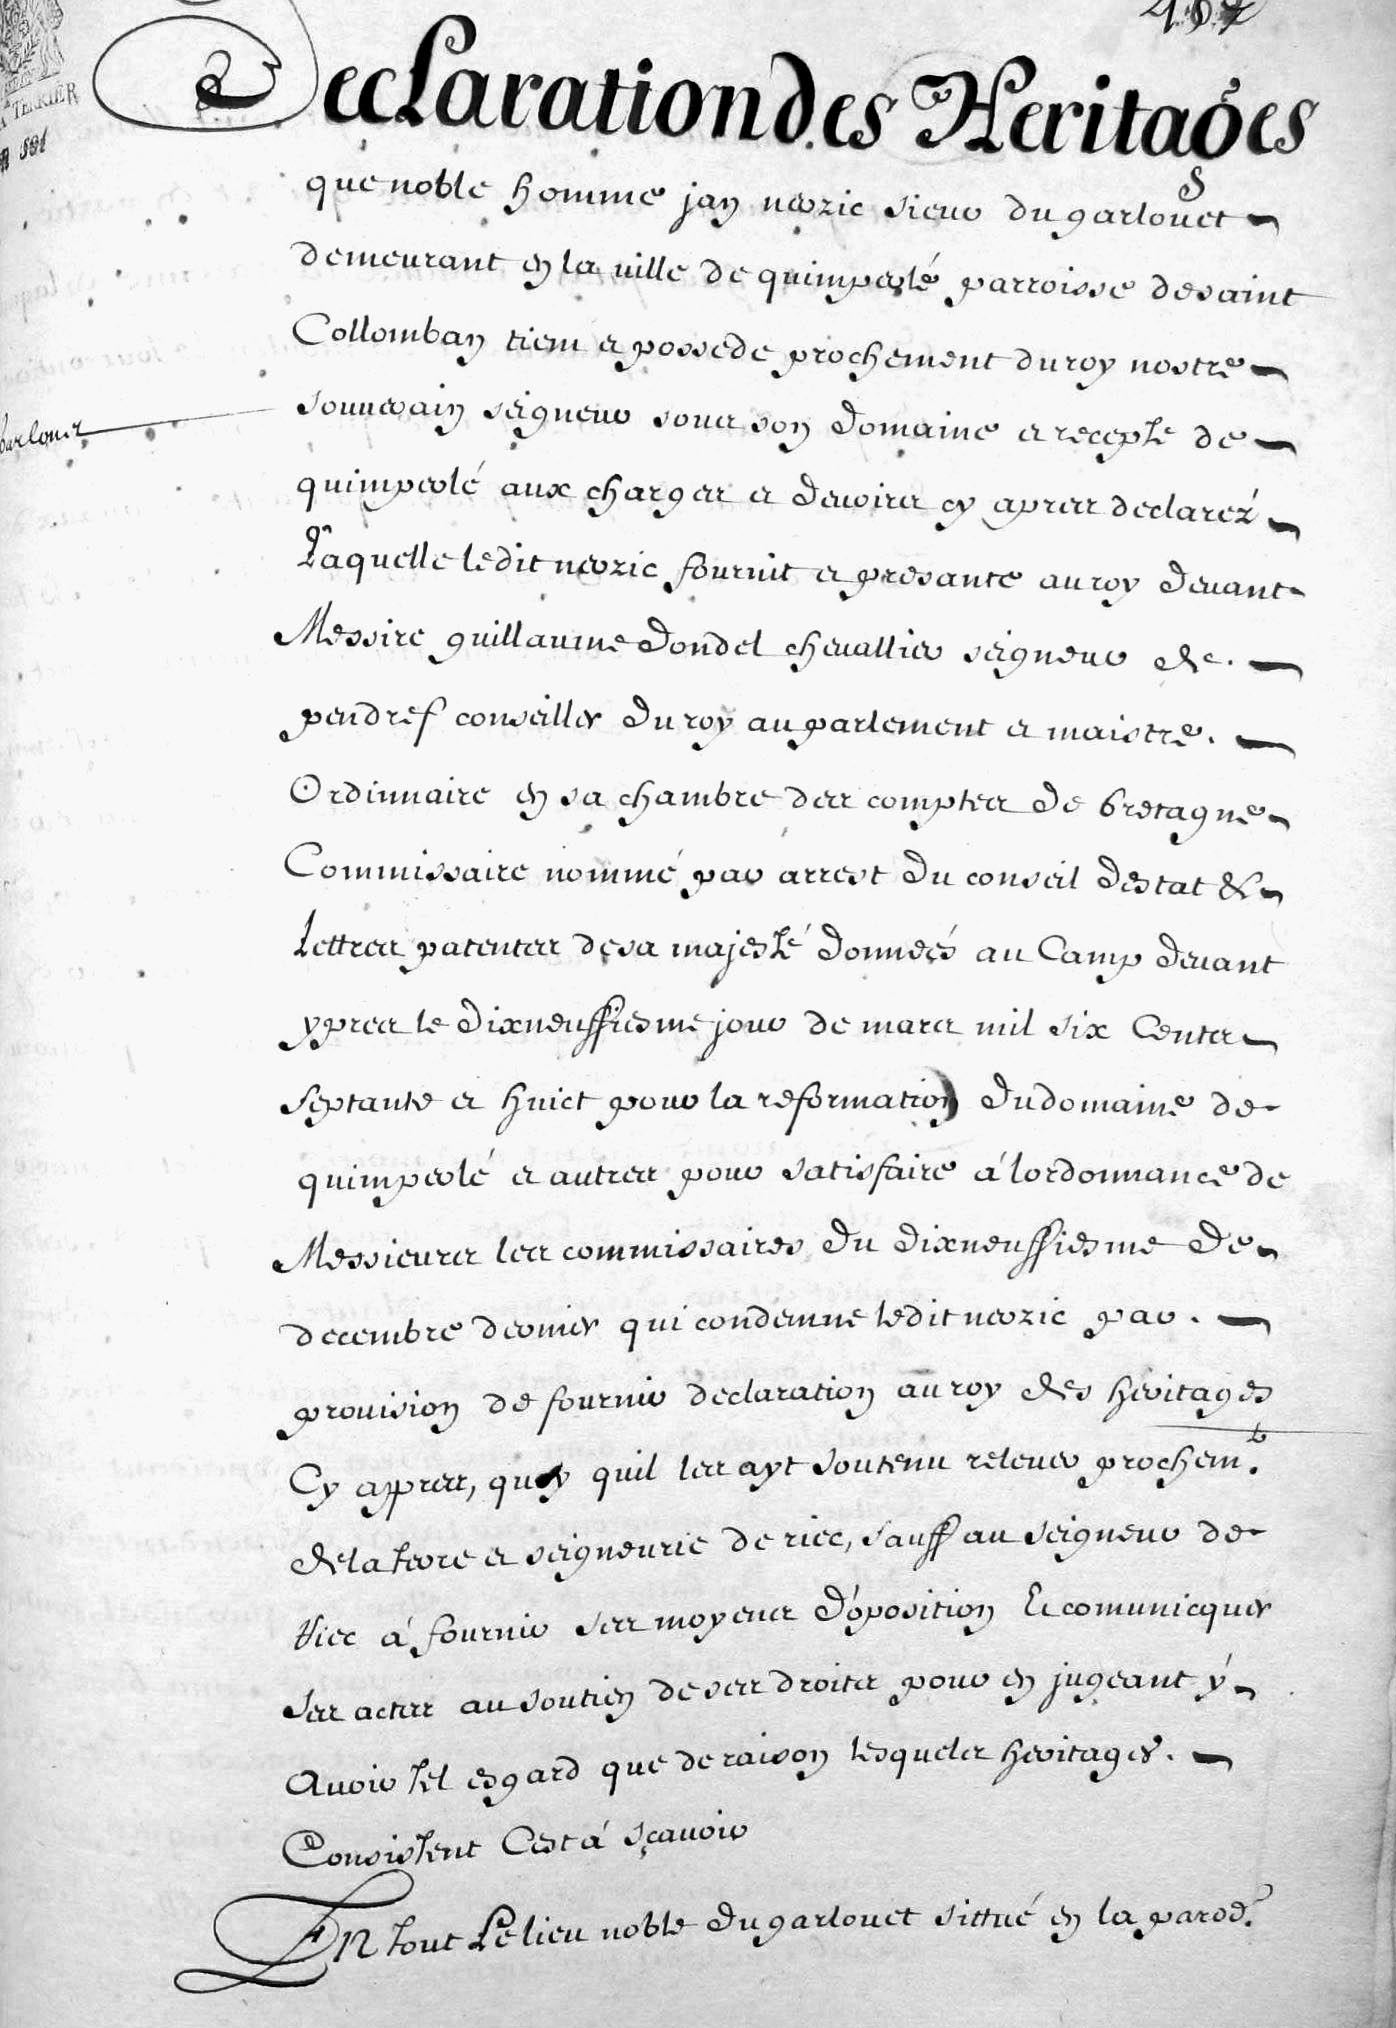 Declaration des Heritages
que noble homme jan nerzic sieur du garlouet
demeurant en la ville de quimperlé parroisse de saint
Collomban tient et possede prochement du roy nostre
souuerain seigneur soubs son domaine et recepte de
quimperlé aux charges et deuoirs cy apres declaréz
Laquelle ledit nerzic fournit et presante au roy deuant
Messire guillaume dondel cheuallier seigneur de
pendref conseiller du roy au parlement et maistre
Ordinnaire en sa chambre des comptes de bretagne
Garlouet
Commissaire nommé par arrest du conseil destat &
Lettres patentes de sa majesté données au Camp deuant
ypres le dixneuffiesme jour de mars mil six Cents
septante et huict pour la reformation du domaine de
quimperlé et autres pour satisfaire á lordonnance de
Messieurs les commissaires du dixneuffiesme de
decembre dernier qui condemne ledit nerzic par
prouision de fournir declaration au roy des heritages
Cy appres, quoy quil les ayt soutenu releuer prochemt.
de la terre et seigneurie de riec, sauff au seigneur de
Riec á fournir ses moyens d'oposition Et comunicquer
ses actes au soutien de ses droits pour en jugeant y
Auoir tel esgard que de raison lesquels heritages
Consistent Cest á sçauoir
En tout Le lieu noble du garlouet sittué en la parod.